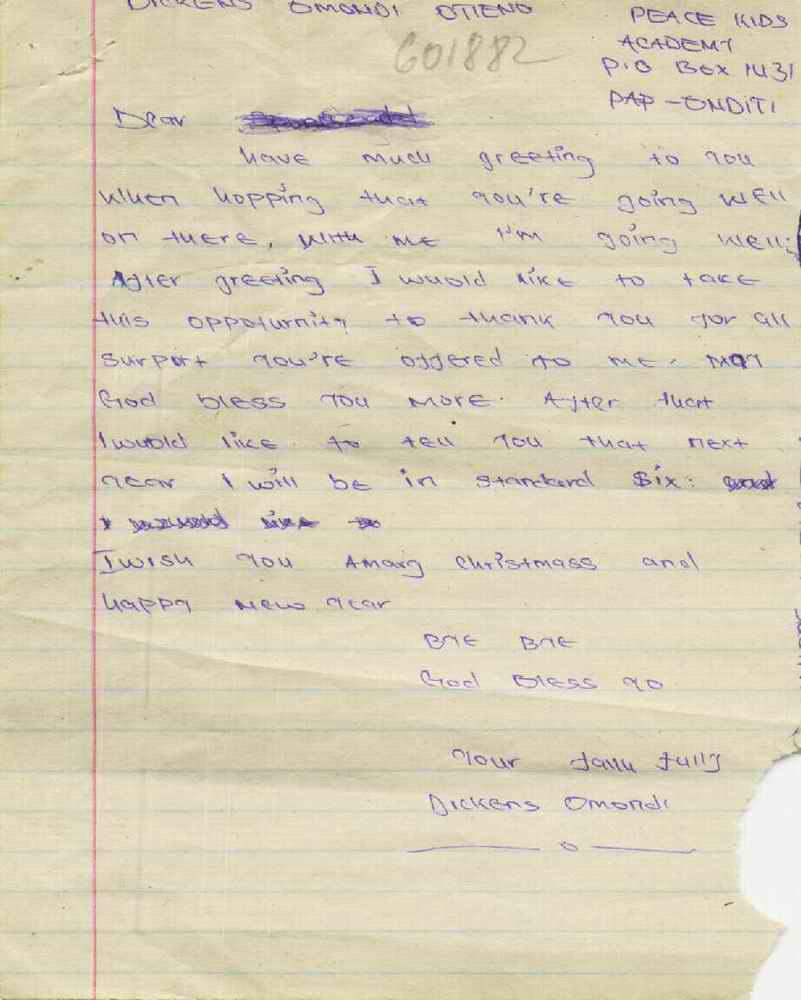 DICKENS OMONDI OTIENO
PEACE KIDS
ACADEMY
P.O BOX 1431
PAP-ONDITI
601882
Dear
have much greeting to you
when hopping that you're going well
on there, with me I'm going well;
After greeting I wuold like to take
this oppoturnity to thank you for all
surport you're offered to me. may
God bless you more. After that
I wuold like to tell you that next
year I will be in standard six:
I like to
I wish you Amarg christmass and
happy new year
BYE BYE
God Bless yo
Your faithfully
Dickens Omondi